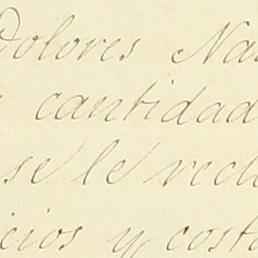 Dolores Na
cantidad
se le recl
icios y costa